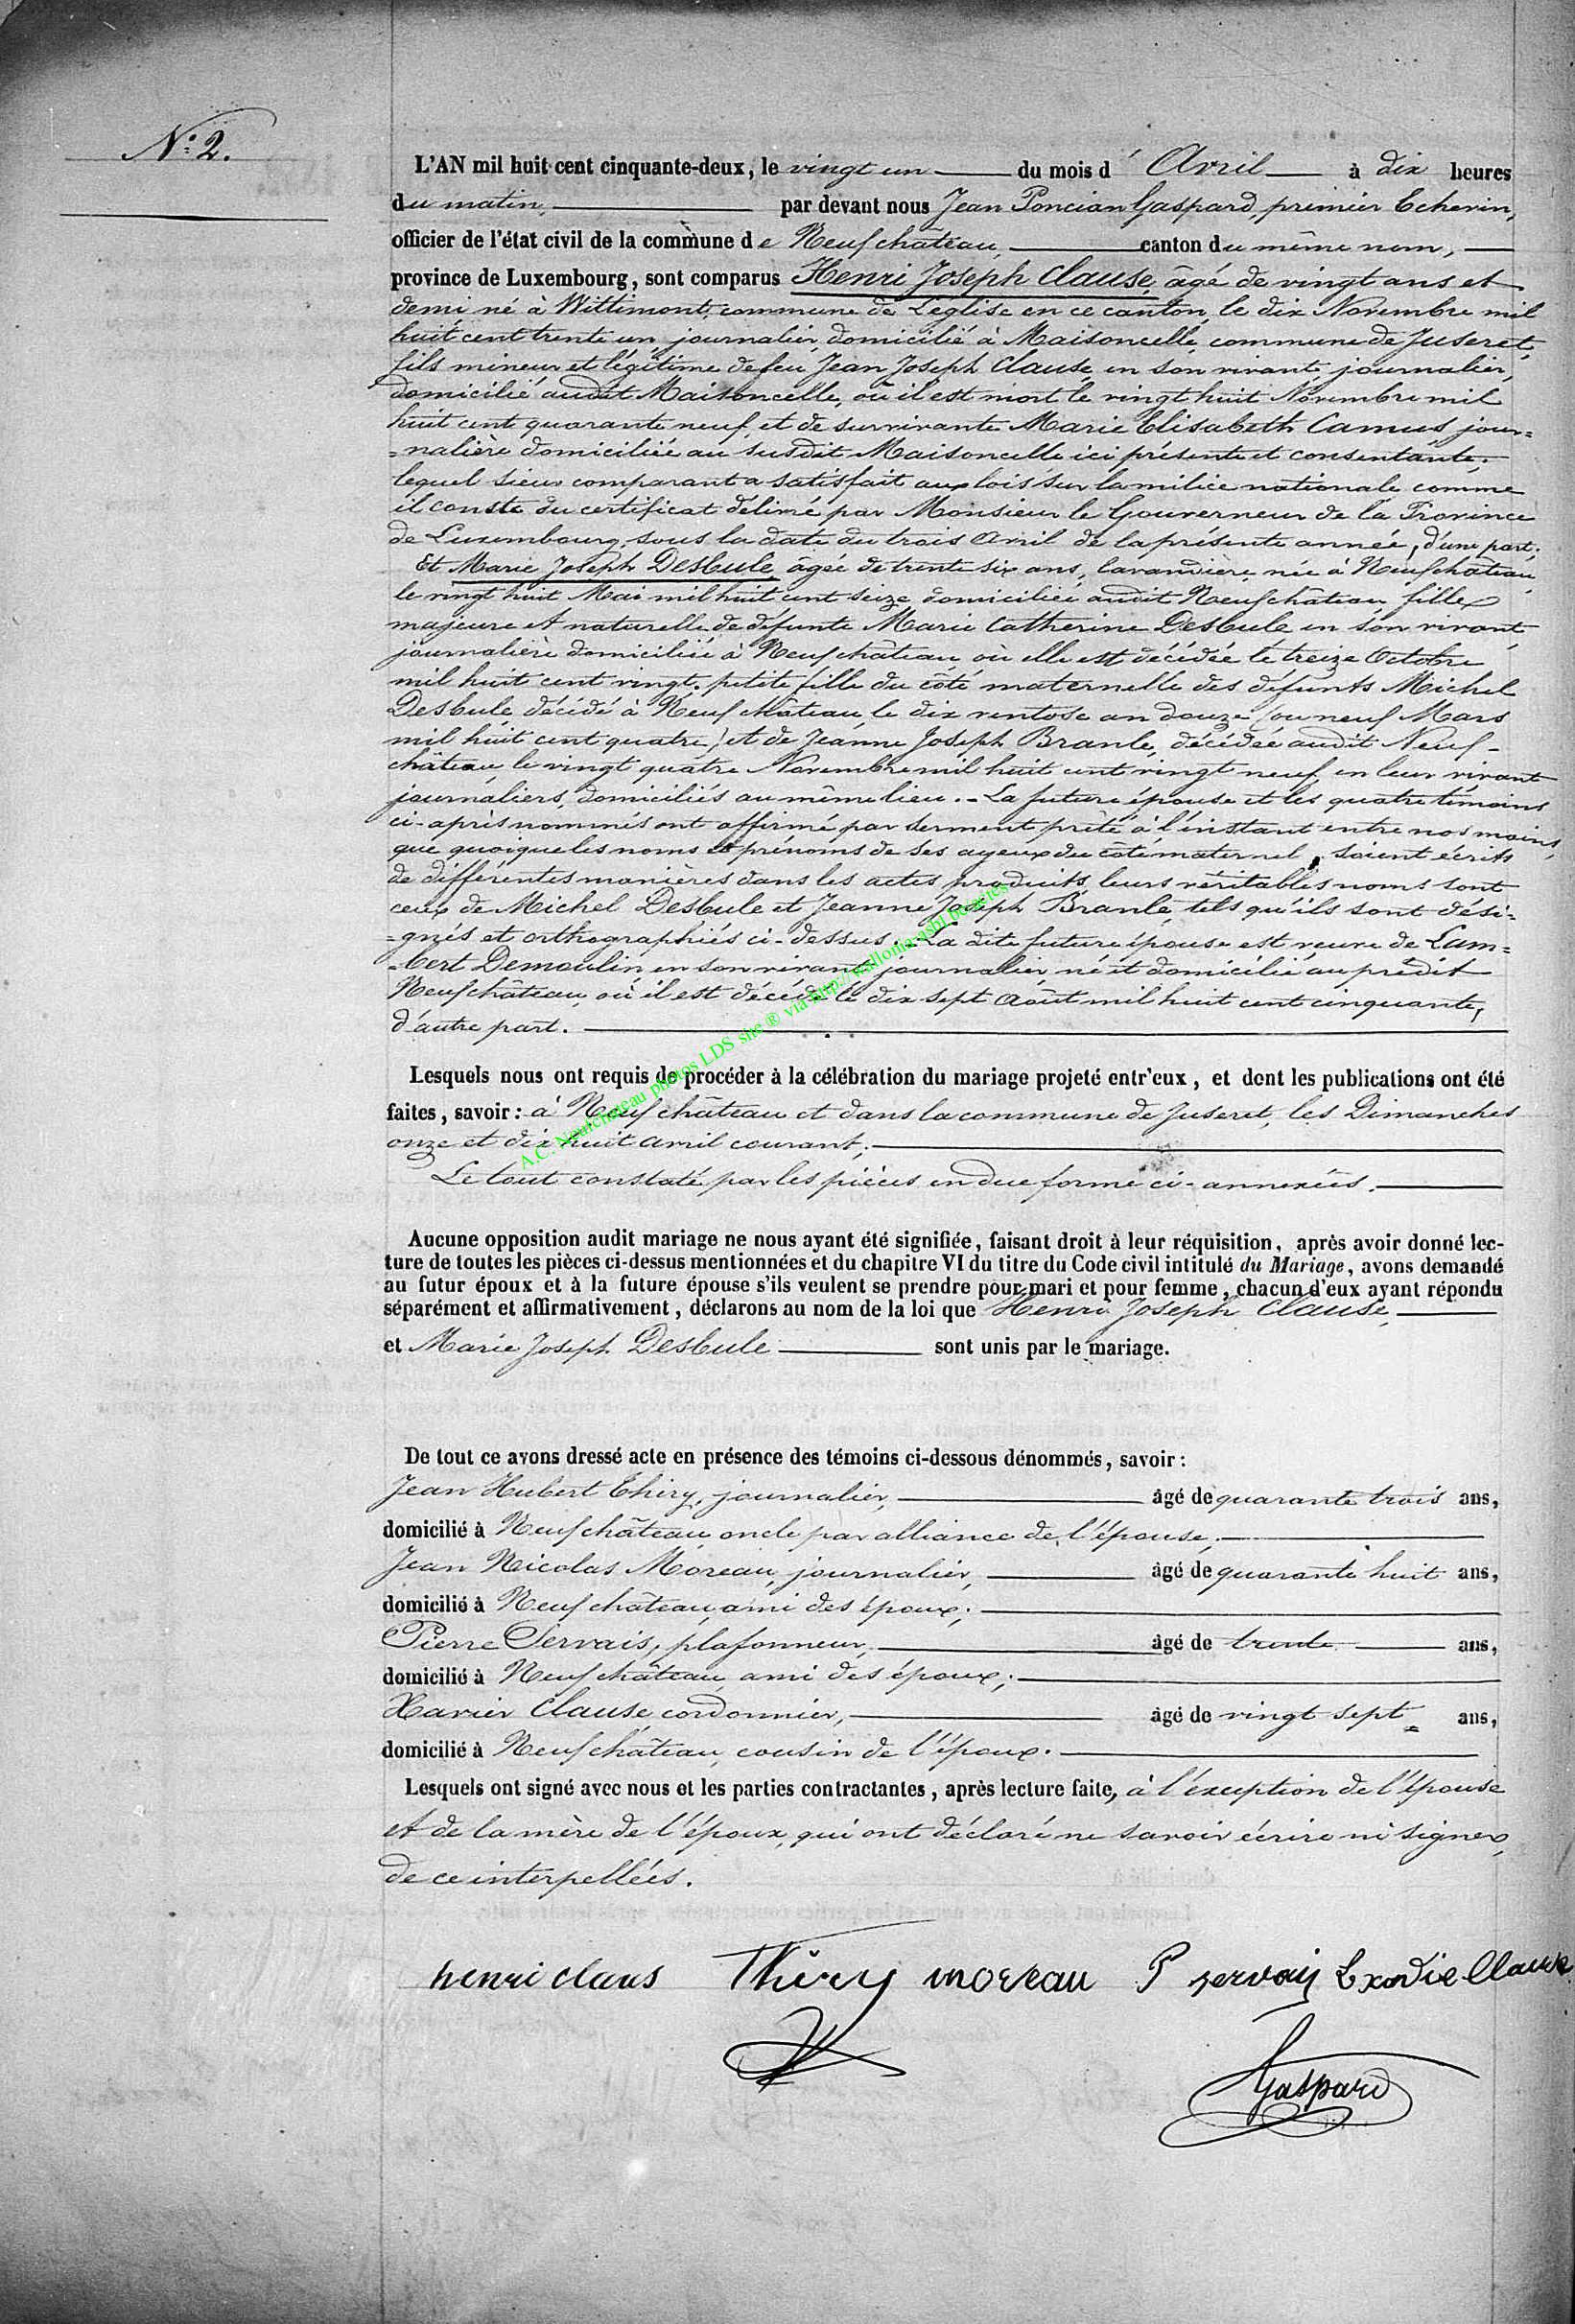 N.° 2.
L'AN mil huit cent cinquante-deux, le vingt un du mois d' Avril à dix heures
du matin, par devant nous Jean Poncian Gaspard, premier Echevin,
officier de l'état civil de la commune de Neufchâteau, canton du même nom,
province de Luxembourg, sont comparus Henri Joseph Clause, âgé de vingt ans et
demi né à Wittimont, commune de Léglise en ce canton, le dix Novembre mil
huit cent trente un, journalier, domicilié à Maisoncelle, commune de Juseret,
fils mineur et légitime de feu Jean Joseph Clause, en son vivant journalier,
domicilié audit Maisoncelle, où il est mort le vingt huit Novembre mil
huit cent quarante neuf, et de survivante Marie Elisabeth Camus jour=
=nalière domiciliée au susdit Maisoncelle ici présente et consentante;
lequel sieur comparant a satisfait aux lois sur la milice nationale comme
il conste du certificat délivré par Monsieur le Gouverneur de la Province
de Luxembourg, sous la date du trois Avril de la présente année, d'une part;
Et Marie Joseph Desbule, âgée de trente six ans, lavandière, née à Neufchâteau,
le vingt huit Mai mil huit cent seize domiciliée audit Neufchâteau, fille
majeure et naturelle de défunte Marie Catherine Desbule en son vivant,
journalière domiciliée à Neufchâteau, où elle est décédée le treize Octobre
mil huit cent vingt. petite fille du côté maternelle des défunts Michel
Desbule, décédé à Neufchâteau, le dix ventose an douze (ou neuf Mars
mil huit cent quatre) et de Jeanne Joseph Branle, décédée audit Neuf-
château le vingt quatre Novembre mil huit cent vingt neuf, en leur vivant
journaliers, domiciliés au même lieu. - La future épouse et les quatre témoins
ci-après nommés ont affirmé par serment prêté à l'instant entre nos mains,
que quoique les noms et prénoms de ses ayeux du côté maternel, soient écrits
de différentes manières dans les actes produits, leurs véritables noms sont
ceux de Michel Desbule et Jeanne Joseph Branle, tels qu'ils sont dési=
=gnés et orthographiés ci-dessus. - La dite future épouse est veuve de Lam=
=bert Demoulin en son vivant journalier, né et domicilié au prédit
Neufchâteau où il est décédé le dix sept Août mil huit cent cinquante,
d'autre part.
Lesquels nous ont requis de procéder à la célébration du mariage projeté entr'eux, et dont les publications ont été
faites, savoir: à Neufchâteau et dans la commune de Juseret, les Dimanches
onze et dix huit avril courant;
Le tout constaté par les pièces en due forme ci-annexées.
Aucune opposition audit mariage ne nous ayant été signifiée, faisant droit à leur réquisition, après avoir donné lec-
ture de toutes les pièces ci-dessus mentionnées et du chapitre VI du titre du Code civil intitulé du Mariage, avons demandé
au futur époux et à la future épouse s'ils veulent se prendre pour mari et pour femme, chacun d'eux ayant répondu
séparément et affirmativement, déclarons au nom de la loi que Henri Joseph Clause,
et Marie Joseph Desbule sont unis par le mariage.
De tout ce avons dressé acte en présence des témoins ci-dessous dénommés, savoir:
Jean Hubert Thiry, journalier, âgé de quarante trois ans,
domicilié à Neufchâteau, oncle par alliance de l'épouse;
Jean Nicolas Moreau, journalier, âgé de quarante huit ans,
domicilié à Neufchâteau, ami des époux;
Pierre Servais, plafonneur, âgé de trente ans,
domicilié à Neufchâteau, ami des époux;
Xavier Clause, cordonnier, âgé de vingt sept ans,
domicilié à Neufchâteau, cousin de l'époux.
Lesquels ont signé avec nous et les parties contractantes, après lecture faite, à l'exception de l'épouse
et de la mère de l'époux, qui ont déclaré ne savoir écrire ni signer,
de ce interpellées.
henri claus Thiry moreau P servais Clause
Gaspard
A.C. Neufchateau photos LDS site ® via http://wallonia-asbl